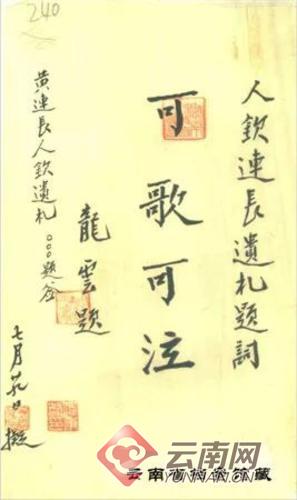 240
人欽連長遺札題詞
可歌可泣
龍雲題
黃連長人欽遺札 ○○○題簽
七月廿九日 擬
云南网
YUNNAN.CN
云南省档案馆藏